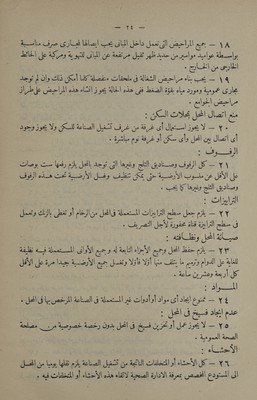 — ٢١ —
١٨ — جميع المراحيض التى تعمل داخل المبانى يجب ايصالها لمجارى صرف مناسبة
بواسطة مواسير من حديد ظهر تبقى مرتفعة عن المبانى للتهوية ومركبة على الحائط
الخارجى من الخارج .
١٩ — يجب بناء مراحيض الشغالة فى ملحقات منفصلة كلما أمكن ذلك وان لم توجد
مجارى عمومية ومورد مياه بقوة الضغط ففى هذه الحالة يجوز انشاء هذه المراحيض على طراز
مراحيض الجوامع .
منع اتصال المحل بمحلات السكن :
٢٠ — لا يجوز استعمال أى غرفة من غرف تشغيل الصناعة للسكن ولا يجوز وجود
أى اتصال بين المحل وأى سكن أو غرفة نوم مباشرة .
الرفوف :
٢١ — كل الرفوف وصناديق الثلج وغيرها التى توجد بالمحل يلزم رفعها ست بوصات
على الأقل عن منسوب الأرضية حتى يمكن تنظيف وغسل الأرضية تحت هذه الرفوف
وصناديق الثلج وغيرها كما يجب .
الترابيزات :
٢٢ — يلزم جعل سطح الترابيزات المستعملة فى المحل من الرخام أو تغطى بالزنك وتعمل
فى سطح الترابيزة قناة محفورة لأجل التصريف .
صيانة المحل ونظافته :
٢٣ — يلزم حفظ المحل وجميع الأجزاء التابعة له وجميع الأوانى المستعملة فيه نظيفة
للغاية على الدوام وترميم ما يتلف منها أولا فأولا وتغسل جميع الأرضية جيدا مرة على الأقل
كل أربعة وعشرين ساعة .
المواد :
٢٤ — ممنوع ايجاد أى مواد أو أدوات غير المستعملة فى الصناعة المرخص بها فى المحل .
عدم ايجاد فسيخ فى المحل :
٢٥ — لا يجوز عمل أو تخزين فسيخ فى المحل بدون رخصة خصوصية من مصلحة
الصحة العمومية .
الأحشاء :
٢٦ — كل الأحشاء أو المتخلفات الناتجة من تشغيل الصناعة يلزم نقلها يوميا من المحل
الى المستودع المخصص بمعرفة الادارة الصحية لالقاء هذه الأحشاء أو المتخلفات فيه .